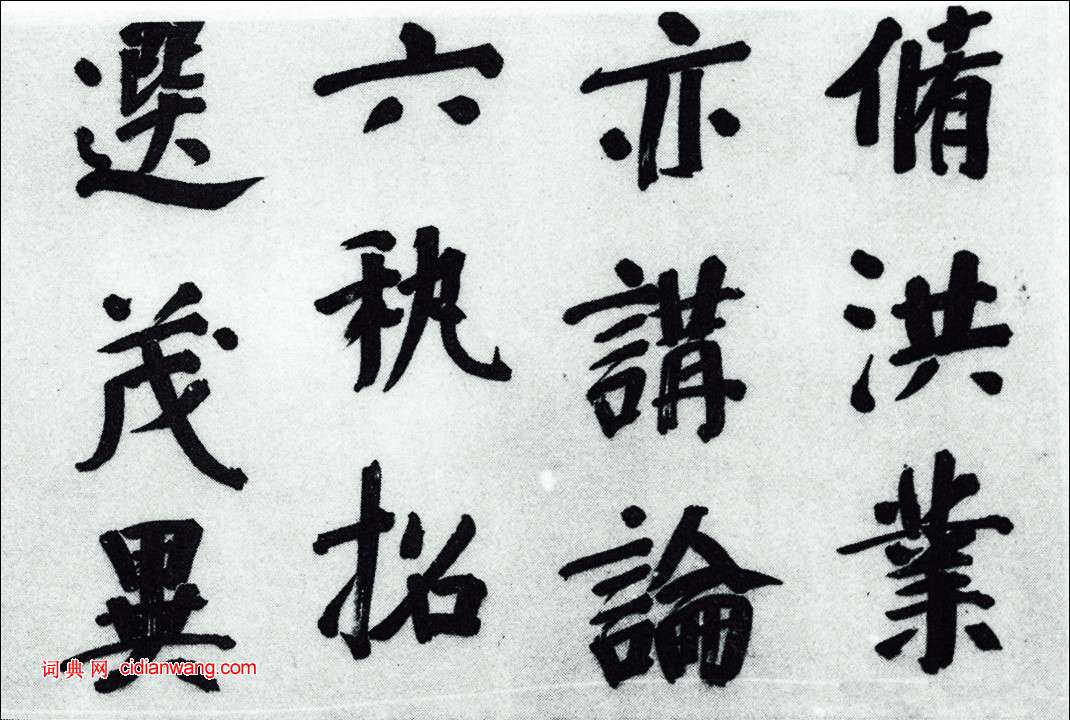 脩洪業
亦講論
六秇招
選茂異
词典网 cidianwang.com